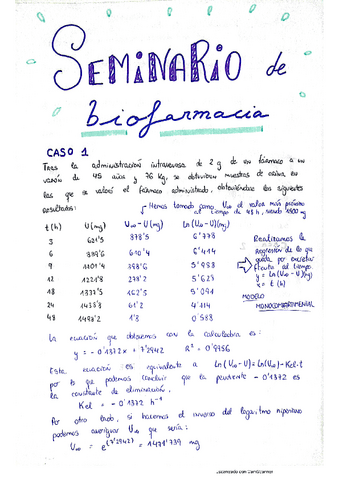 SEMINARIO de
biofarmacia
CASO 1
Tras la administración intravenosa de 2 g de un fármaco a un
varón de 45 años y 76 kg, se obtuvieron muestras de orina en
las que se valoró el fármaco administrado, obteniéndose los siguientes
resultados:
Hemos tomado como U∞ el valor más próximo
al tiempo de 48 h, siendo 1500 mg
t (h) U(mg) U∞ - U(mg) Ln(U∞ - U)(mg)
3 621'5 878'5 6'778
6 610'4 6'414
9 1101'4 398'6 5'988
12 1221'8 278'2 5'628
18 1337'5 162'5 5'091
24 1438'8 61'2 4'114
48 1498'2 1'8 0'588
Realizamos la
regresión de lo que
queda por excretar
frente al tiempo.
y = Ln(U∞-U)(mg)
x = t (h)
MODELO
MONOCOMPARTIMENTAL
La ecuación que obtenemos con la calculadora es:
y = - 0'1372x + 7'2942 R² = 0'9956
Esta ecuación es equivalente a Ln(U∞-U) = Ln(U∞) - Kel·t
por lo que podemos concluir que la pendiente -0'1372 es
la constante de eliminación.
Kel = - 0'1372 h⁻¹
Por otro lado, si hacemos el inverso del logaritmo neperiano
podemos averiguar U∞ que sería:
U∞ = e^(7'2942) = 1471'739 mg
Escaneado con CamScanner